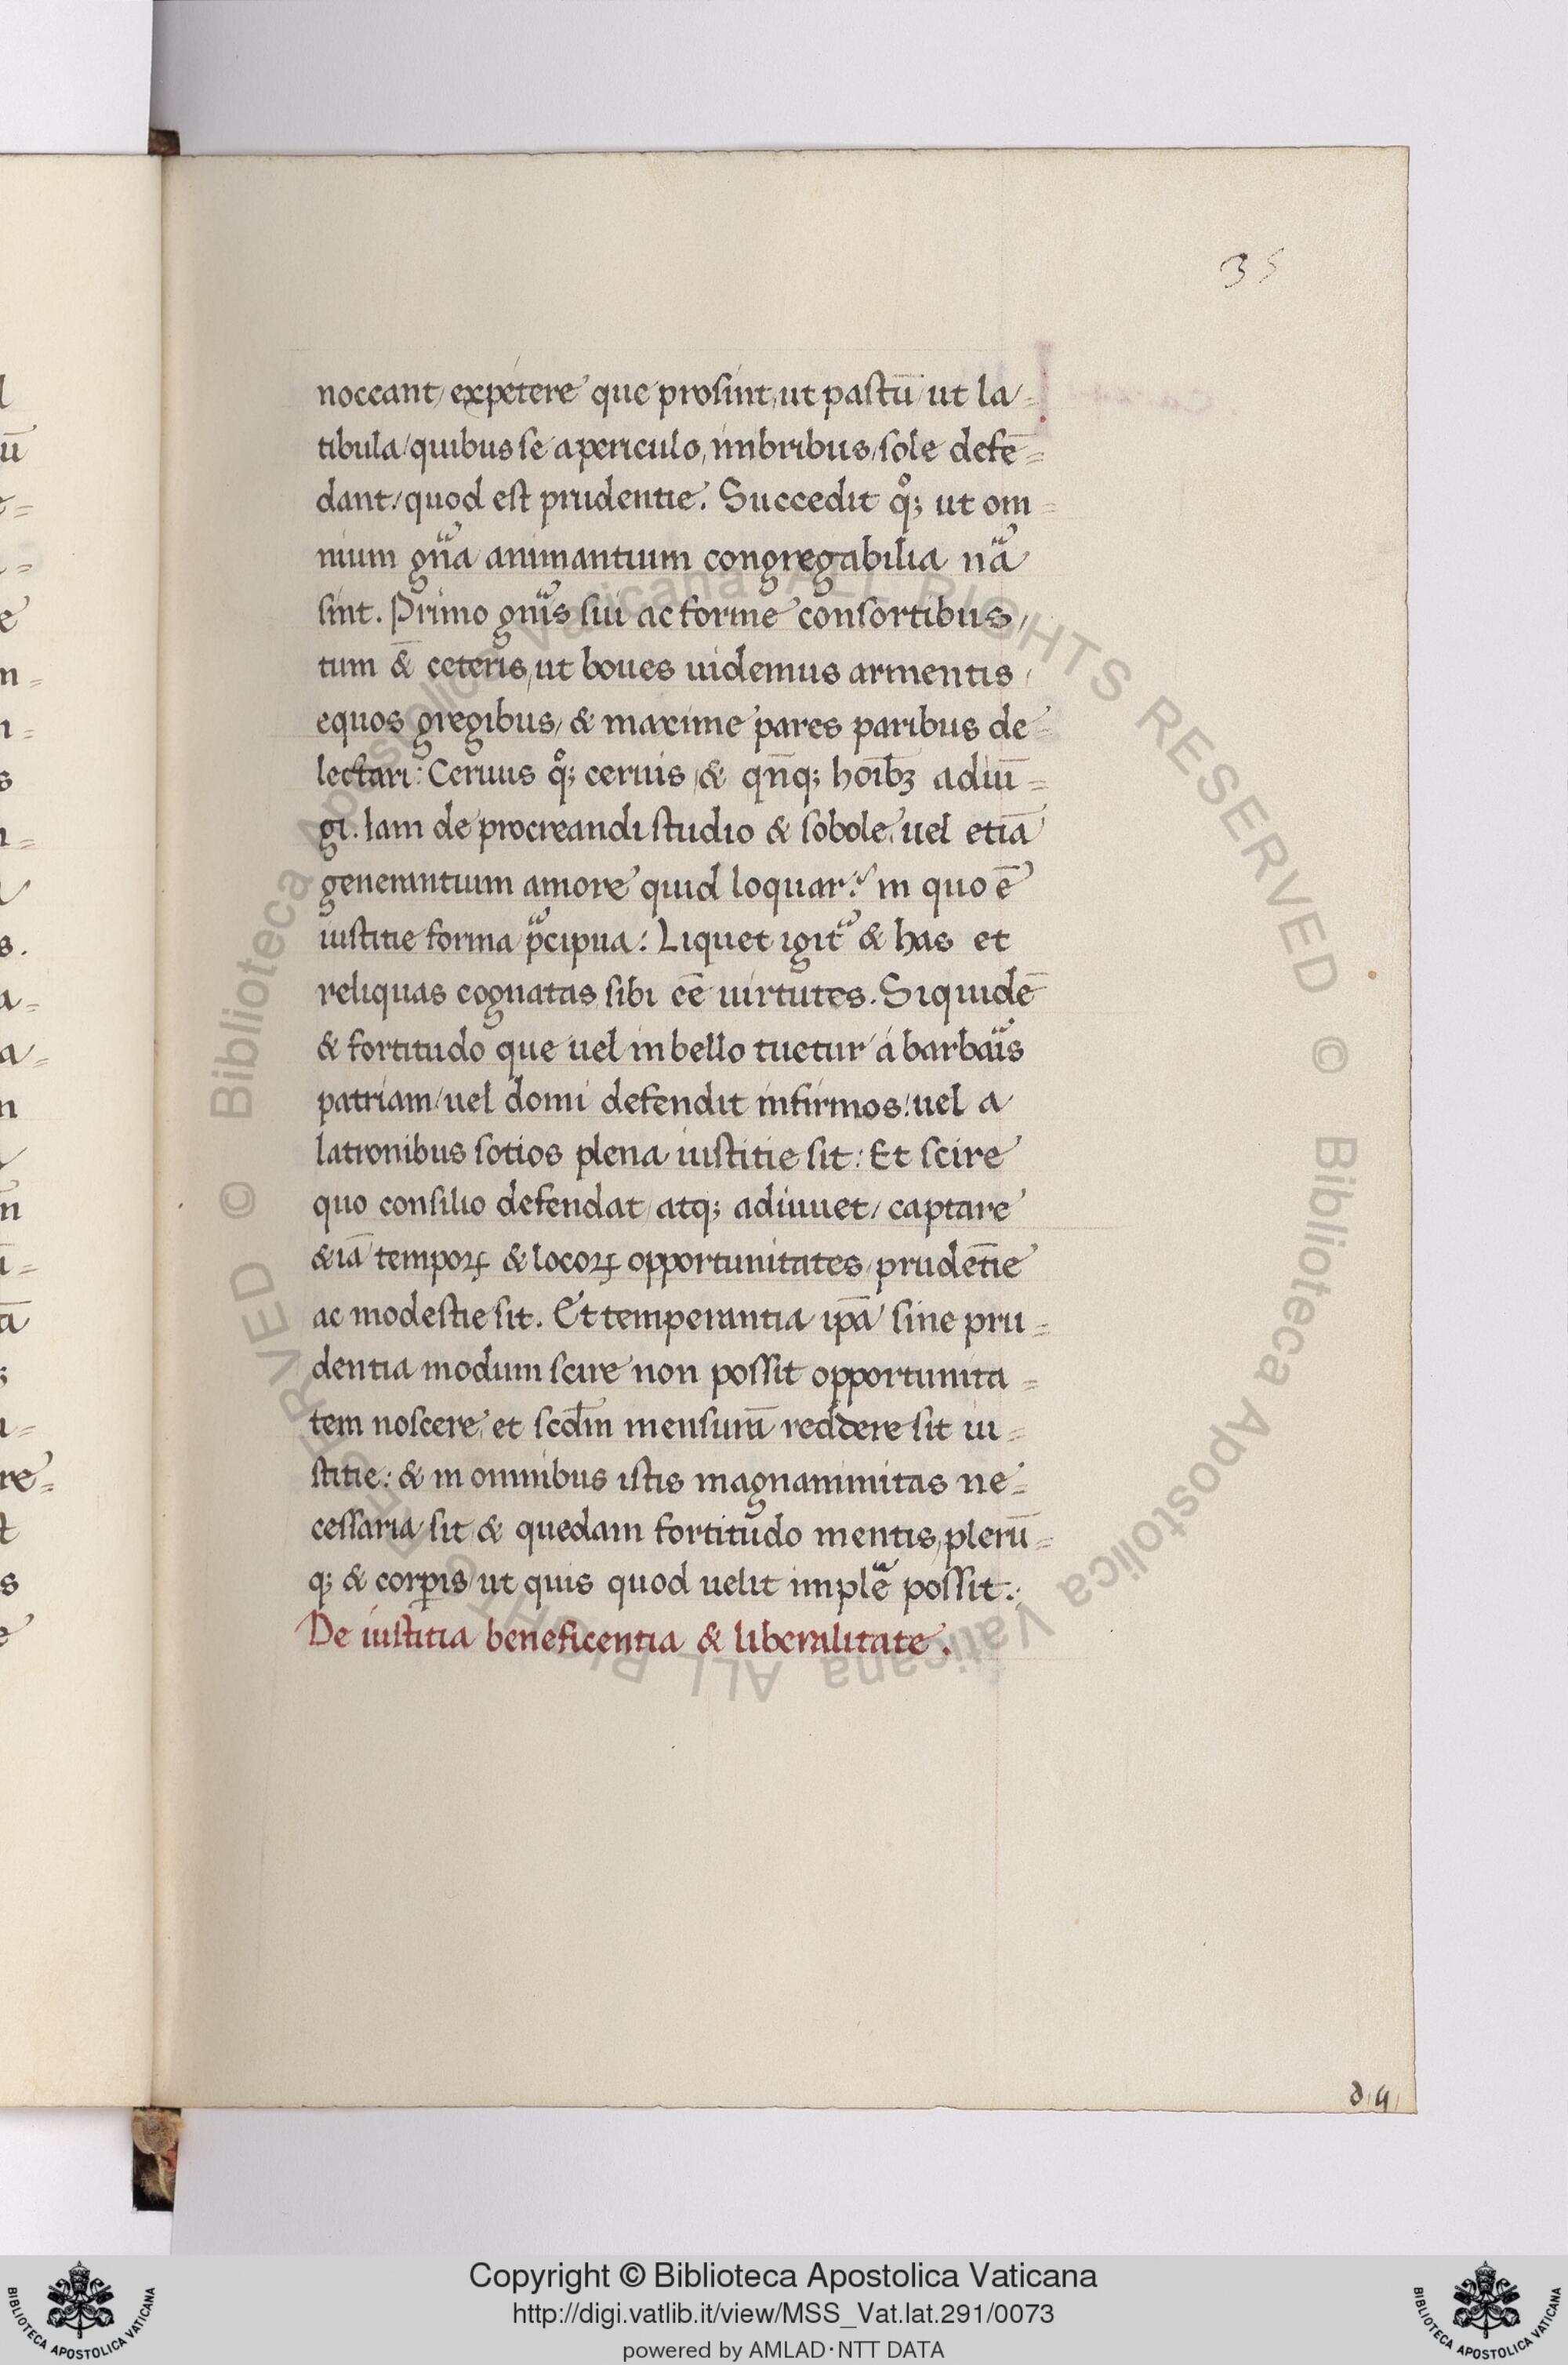 35
noceant/ expetere que prosint, ut pastū ut la=
tibula/ quibus se a periculo, imbribus, sole defē=
dant/ quod est prudentie. Succedit qͦꝫ ut om=
nium gna animantium congregabilia na
sint. Primo gnis sui ac forme consortibus/
tum & ceteris, ut boues uidemus armentis/
equos gregibus/ & maxime pares paribus de=
lectari: Ceruus qͦꝫ ceruis, & qn̄qꝫ hoībꝫ adiū=
gi. Iam de procreandi studio & sobole, uel etiā
generantium amore quid loquar? in quo ē
iustitie forma pcipua: Liquet igit & has et
reliquas cognatas sibi eē uirtutes. Siquidē
& fortitudo que uel in bello tuetur á barbais
patriam/ uel domi defendit infirmos: uel a
latronibus sotios plena iustitie sit: Et scire
quo consilio defendat/ atqꝫ adiuuet/ captare
&iā temporꝝ & locorꝝ opportunitates/ prudētie
ac modestie sit. Et temperantia ipā sine pru=
dentia modum scire non possit opportunita=
tem noscere, et scdm̄ mensurā reddere sit iu=
stitie: & in omnibus istis magnanimitas ne=
cessaria sit & quedam fortitudo mentis, plerū=
qꝫ & corꝑis/ ut quis quod uelit implē possit.
De iustitia beneficentia & liberalitate.
Copyright © Biblioteca Apostolica Vaticana
http://digi.vatlib.it/view/MSS_Vat.lat.291/0073
powered by AMLAD·NTT DATA
BIBLIOTECA APOSTOLICA VATICANA
BIBLIOTECA APOSTOLICA VATICANA
© Biblioteca Apostolica Vaticana ALL RIGHTS RESERVED
© Biblioteca Apostolica Vaticana ALL RIGHTS RESERVED